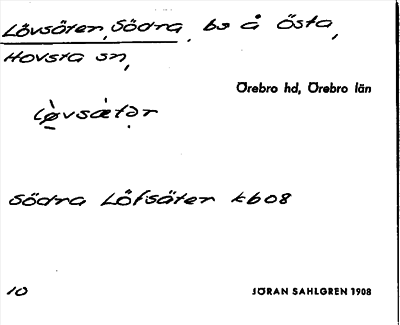 Lövsäter, Södra, bs å Östa,
Hovsta sn,
Örebro hd, Örebro län
Södra Löfsäter kb08
10
JÖRAN SAHLGREN 1908